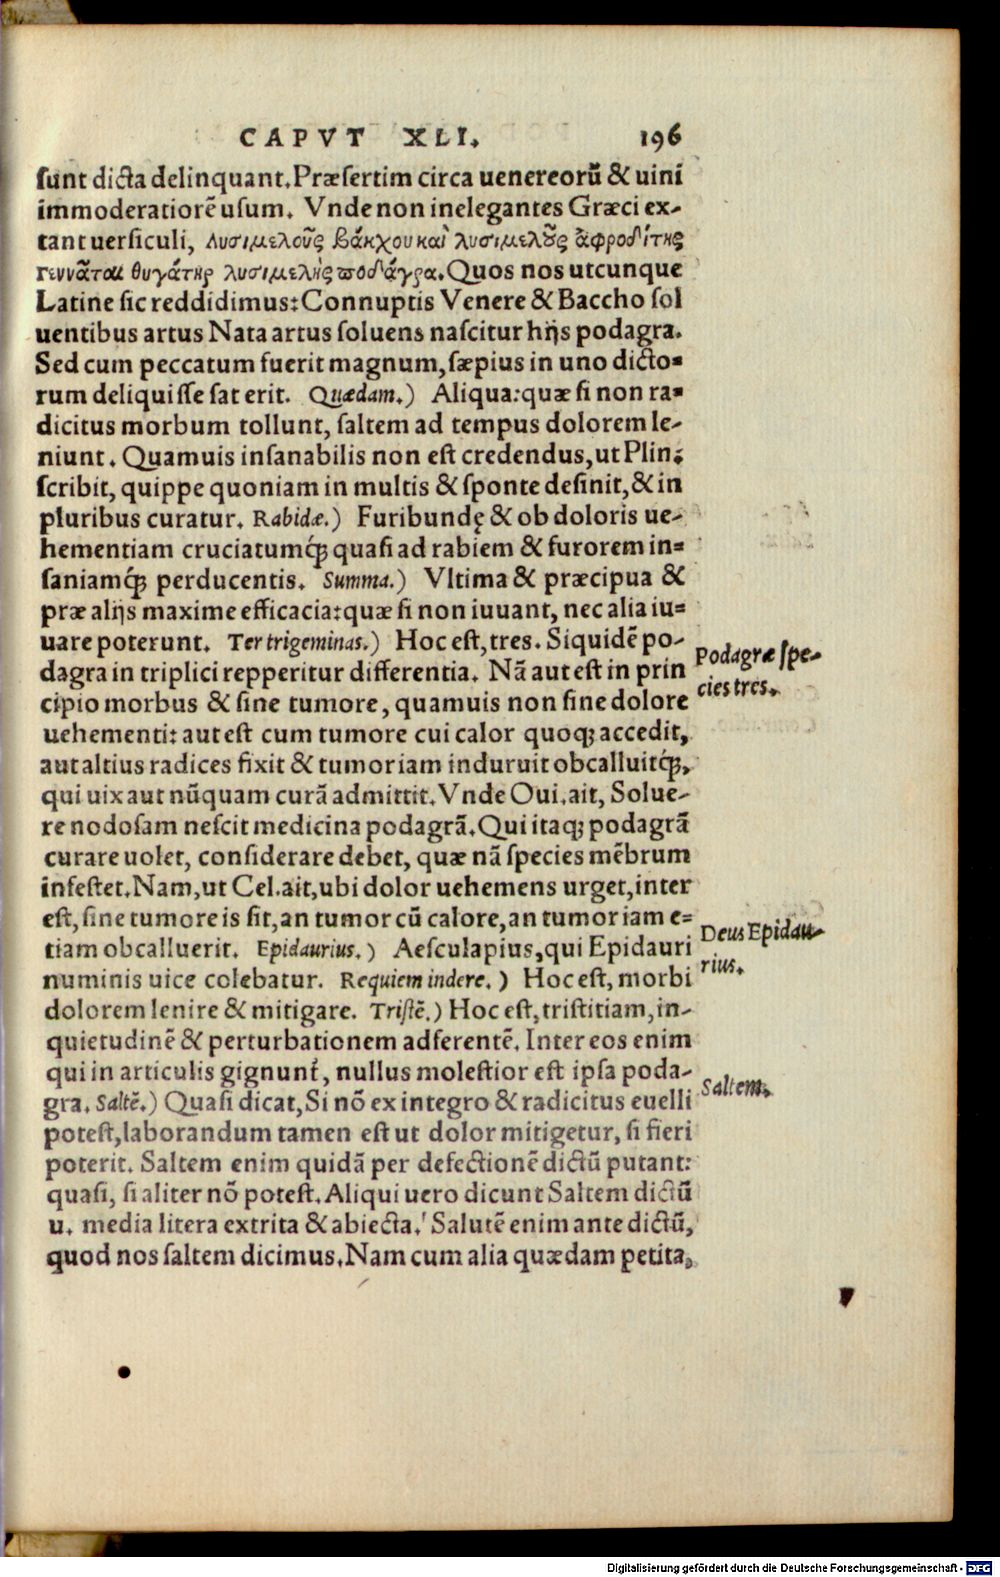 CAPVT XLI. 196
sunt dicta delinquant. Præsertim circa uenereorũ & uini
immoderatiorẽ usum. Vnde non inelegantes Græci ex-
tant uersiculi, Λυσιμελοῦς βάκχου καὶ λυσιμελοῦς ἀφροδίτης
γεννᾶται θυγάτηρ λυσιμελὴς ποδάγρα. Quos nos utcunque
Latine sic reddidimus: Connuptis Venere & Baccho sol
uentibus artus Nata artus soluens nascitur hijs podagra.
Sed cum peccatum fuerit magnum, sæpius in uno dicto-
rum deliquisse sat erit. Quædam.) Aliqua: quæ si non ra-
dicitus morbum tollunt, saltem ad tempus dolorem le-
niunt. Quamuis insanabilis non est credendus, ut Plin:
scribit, quippe quoniam in multis & sponte desinit, & in
pluribus curatur. Rabidæ.) Furibundę & ob doloris ue-
hementiam cruciatumq́ꝫ quasi ad rabiem & furorem in-
saniamq́ꝫ perducentis. Summa.) Vltima & præcipua &
præ alijs maxime efficacia: quæ si non iuuant, nec alia iu-
uare poterunt. Ter trigeminas.) Hoc est, tres. Siquidẽ po-
dagra in triplici repperitur differentia. Nã aut est in prin
Podagræ spe-
cies tres.
cipio morbus & sine tumore, quamuis non sine dolore
uehementi: aut est cum tumore cui calor quoqꝫ accedit,
aut altius radices fixit & tumor iam induruit obcalluitq́ꝫ,
qui uix aut nũquam curã admittit. Vnde Oui. ait, Solue-
re nodosam nescit medicina podagrã. Qui itaqꝫ podagrã
curare uolet, considerare debet, quæ nã species mẽbrum
infestet. Nam, ut Cel. ait, ubi dolor uehemens urget, inter
est, sine tumore is sit, an tumor cũ calore, an tumor iam e-
tiam obcalluerit. Epidaurius.) Aesculapius, qui Epidauri
Deus Epidau-
rius.
numinis uice colebatur. Requiem indere.) Hoc est, morbi
dolorem lenire & mitigare. Tristẽ.) Hoc est, tristitiam, in-
quietudinẽ & perturbationem adferentẽ. Inter eos enim
qui in articulis gignunt́, nullus molestior est ipsa poda-
gra. Saltẽ.) Quasi dicat, Si nõ ex integro & radicitus euelli
Saltem.
potest, laborandum tamen est ut dolor mitigetur, si fieri
poterit. Saltem enim quidã per defectionẽ dictũ putant:
quasi, si aliter nõ potest. Aliqui uero dicunt Saltem dictũ
u. media litera extrita & abiecta. Salutẽ enim ante dictũ,
quod nos saltem dicimus. Nam cum alia quædam petita,
Digitalisierung gefördert durch die Deutsche Forschungsgemeinschaft - DFG